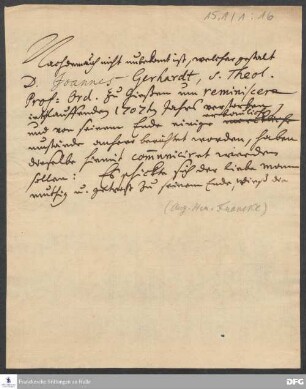 15.1/1 : 16
Nachdem auch nicht unbekant ist, welcher gestalt
D. Joannes Gerhardt, S. Theol.
Prof: Ord. zu Gießen um reminiscere
instehenden 1707ten Jahrs verstorben,
und von seinem Ende einige erbauliche
umstände anhero berichtet worden, haben
dieselbe hiemit communicirt werden
sollen: Es schickte sich der liebe mann
muthig u. getrost zu seinem Ende, wieß den
(Aug. Herm. Francke)
Franckesche Stiftungen zu Halle
DFG